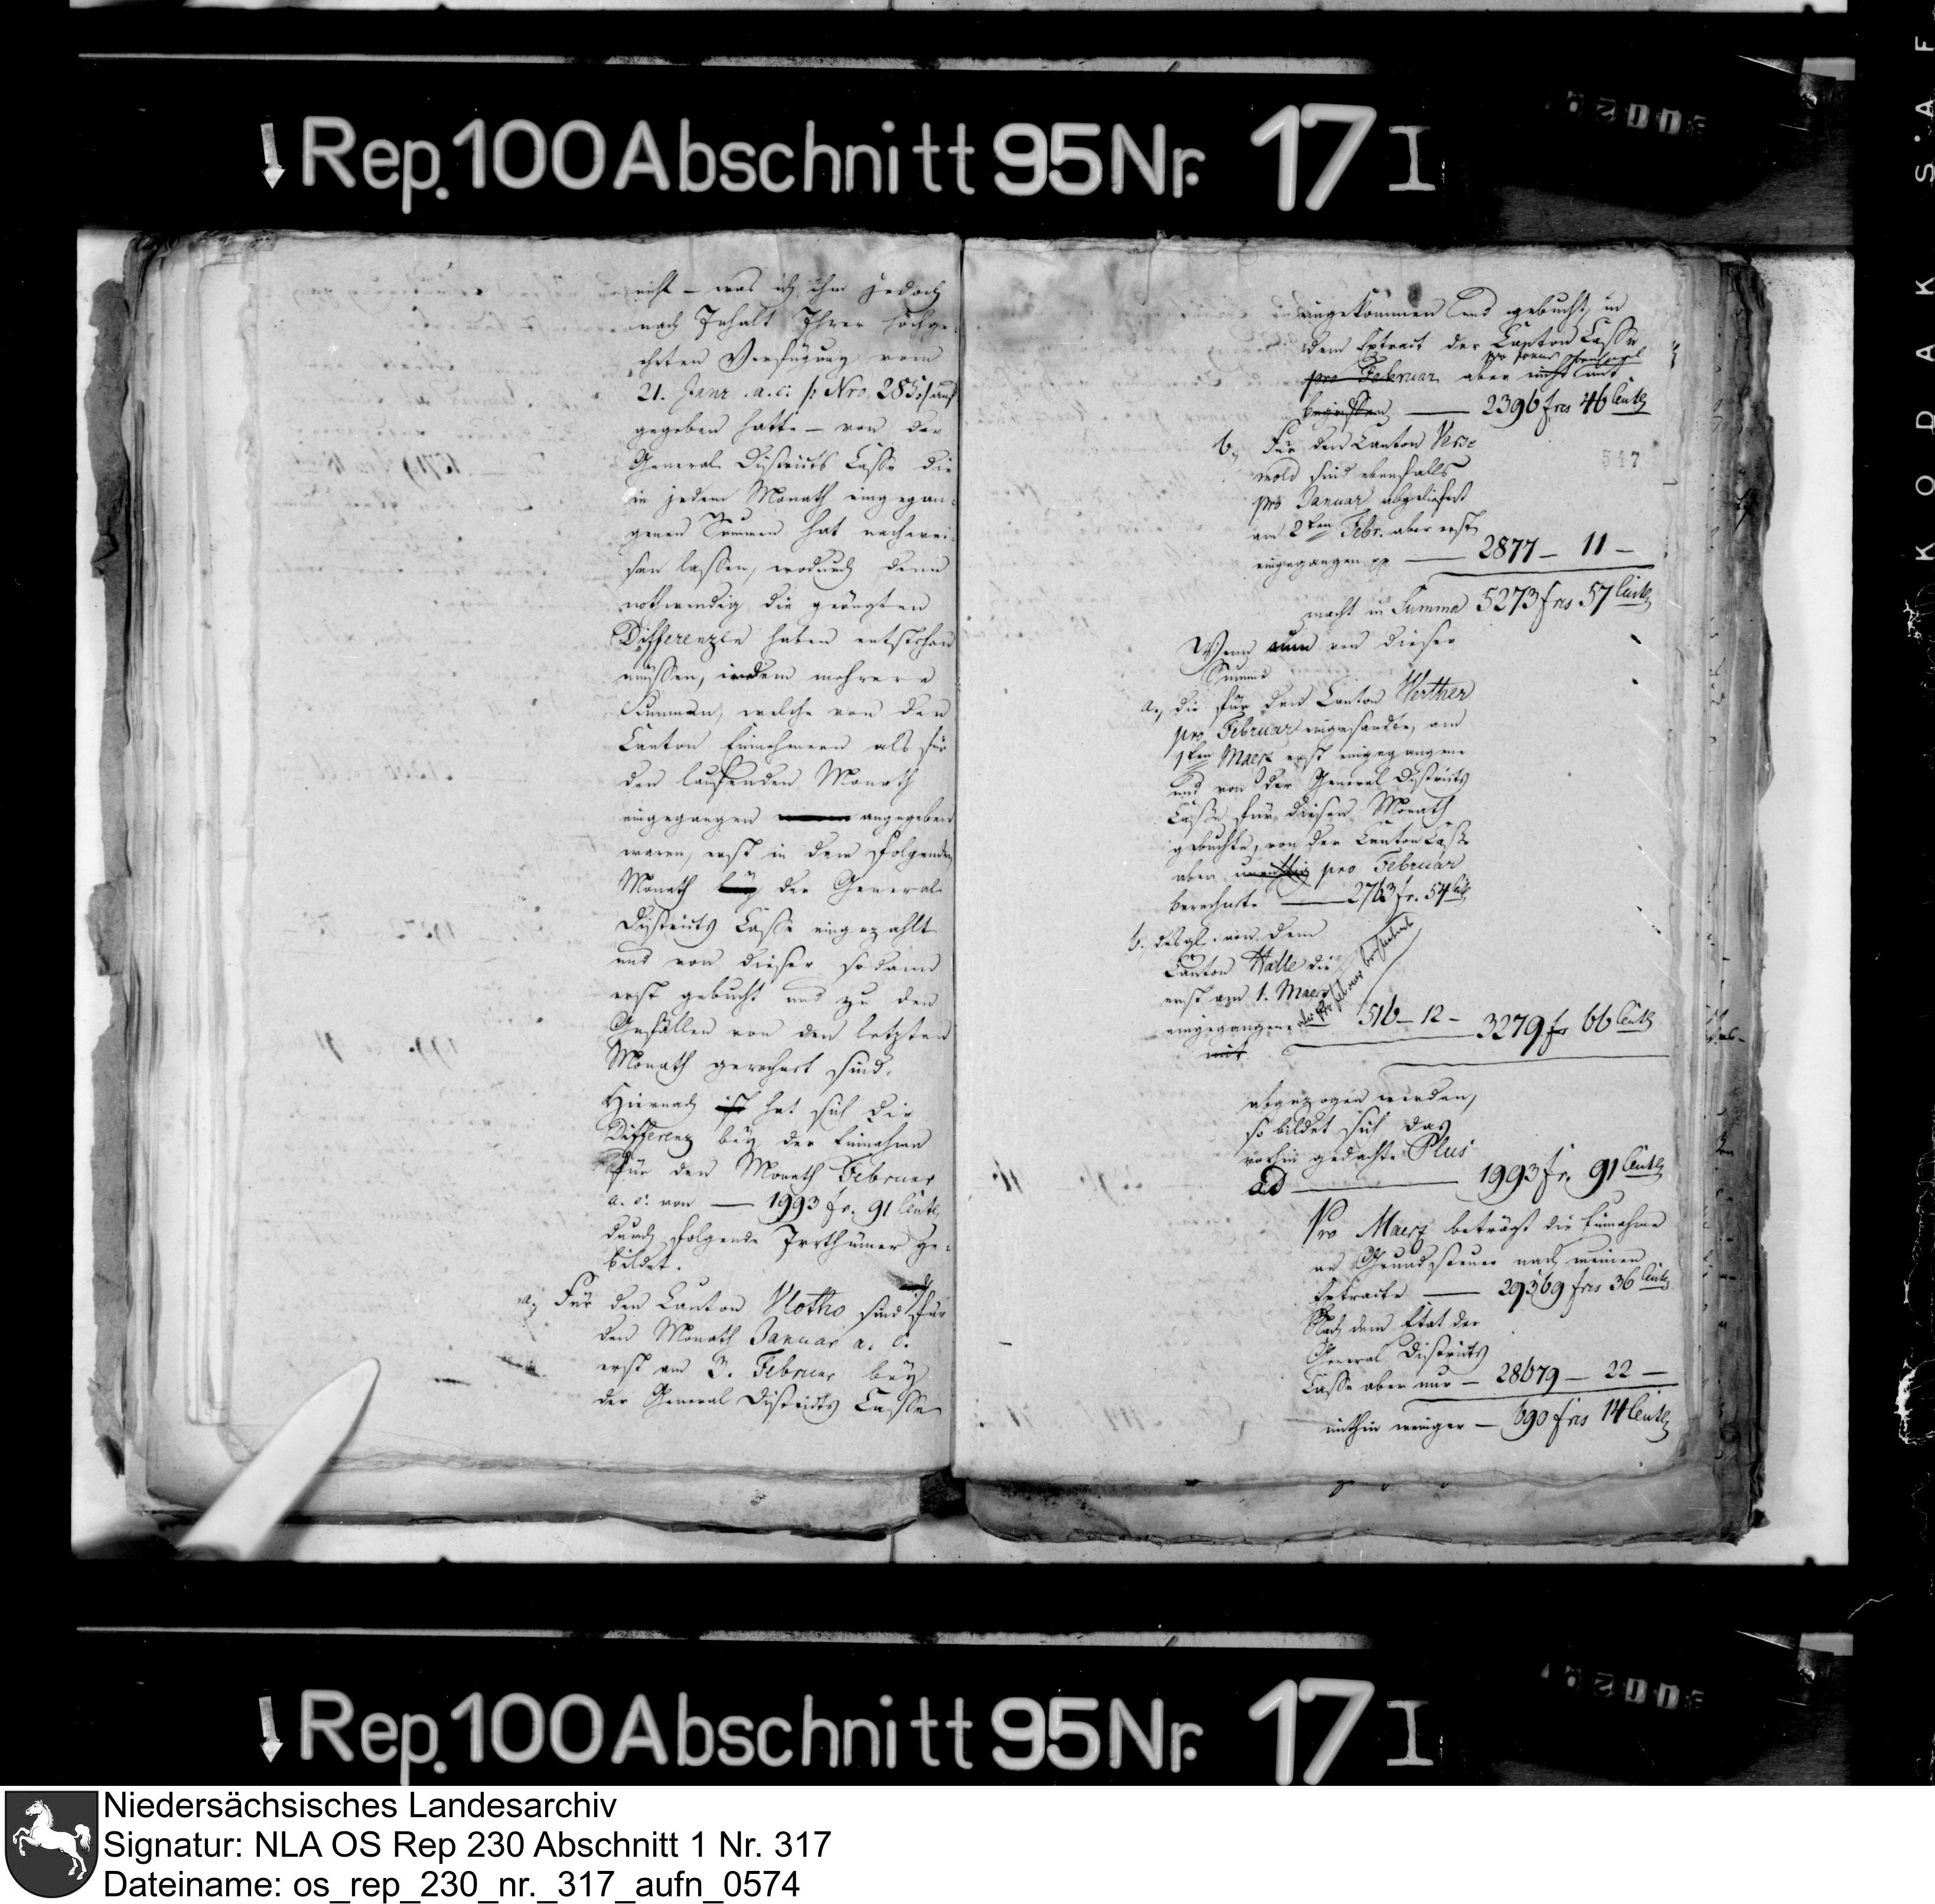 Rep. 100 Abschnitt 95 Nr. 17 I
nicht – was ich ihm jedoch
nach Inhalt Ihrer hochge-
ehrten Verfügung vom
21. Janr. a. c. /: Nro. 285 :/ auf
gegeben hatte – von der
General Districts Casse die
in jedem Monath eingegan-
genen Summen hat nachwei-
sen lassen, wodurch denn
nothwendig die gerügten
Differenzen haben entstehen
müssen, indem mehrere
Summen, welche von den
Canton Einnehmern als für
den laufenden Monath
eingegangen angegeben
waren, erst in dem folgenden
Monath bey der General
Districts Casse eingezahlt
und von dieser sodann
erst gebucht und zu den
Gefällen von den letzten
Monath gerechnet sind.
Hiernach ist hat sich die
Differenz bey der Einnahme
für den Monath Februar
a. c. von — 1993 fr. 91 Cent
durch folgende Irrthümer ge-
bildet.
a, Für den Canton Vlotho sind für
den Monath Januar a. c.
erst am 3. Februar bey
der General Districts Casse
eingekommen und gebucht, in
dem Extract der Canton Casse
pro Februar aber nicht mit
begriffen — 2396 frcs 46 Cent
547
b, Für den Canton Vers-
mold sind ebenfalls
pro Januar abgeliefert
am 2ten Febr. aber erst
eingegangen — 2877 – 11 –
macht in Summa 5273 frcs 57 Cent
Wenn nun von dieser
Summe
a., die für den Canton Werther
pro Februar eingesandte, am
1ten Maerz erst eingegangene
und von der General Districts
Casse für diesen Monath
gebuchte, von der Canton Casse
aber pro Februar
berechnete — 2763 fr. 54 Cent
b. desgl. von dem
Canton Halle die
erst am 1. Maerz
eingegangene 516 – 12 – 3279 fr 66 Cent
mit
abgezogen werden,
so bildet sich das
vorhin gedachte Plus
ad — 1993 fr. 91 Cent
Pro Maerz beträgt die Einnahme
an Grundsteuer nach meinen
Extracte — 29369 frcs 36 Cent
Nach dem Etat der
General Districts
Casse aber nur — 28679 – 22 –
mithin weniger — 690 frcs 14 Cent
KODAK SAF
Rep. 100 Abschnitt 95 Nr. 17 I
Niedersächsisches Landesarchiv
Signatur: NLA OS Rep 230 Abschnitt 1 Nr. 317
Dateiname: os_rep_230_nr._317_aufn_0574